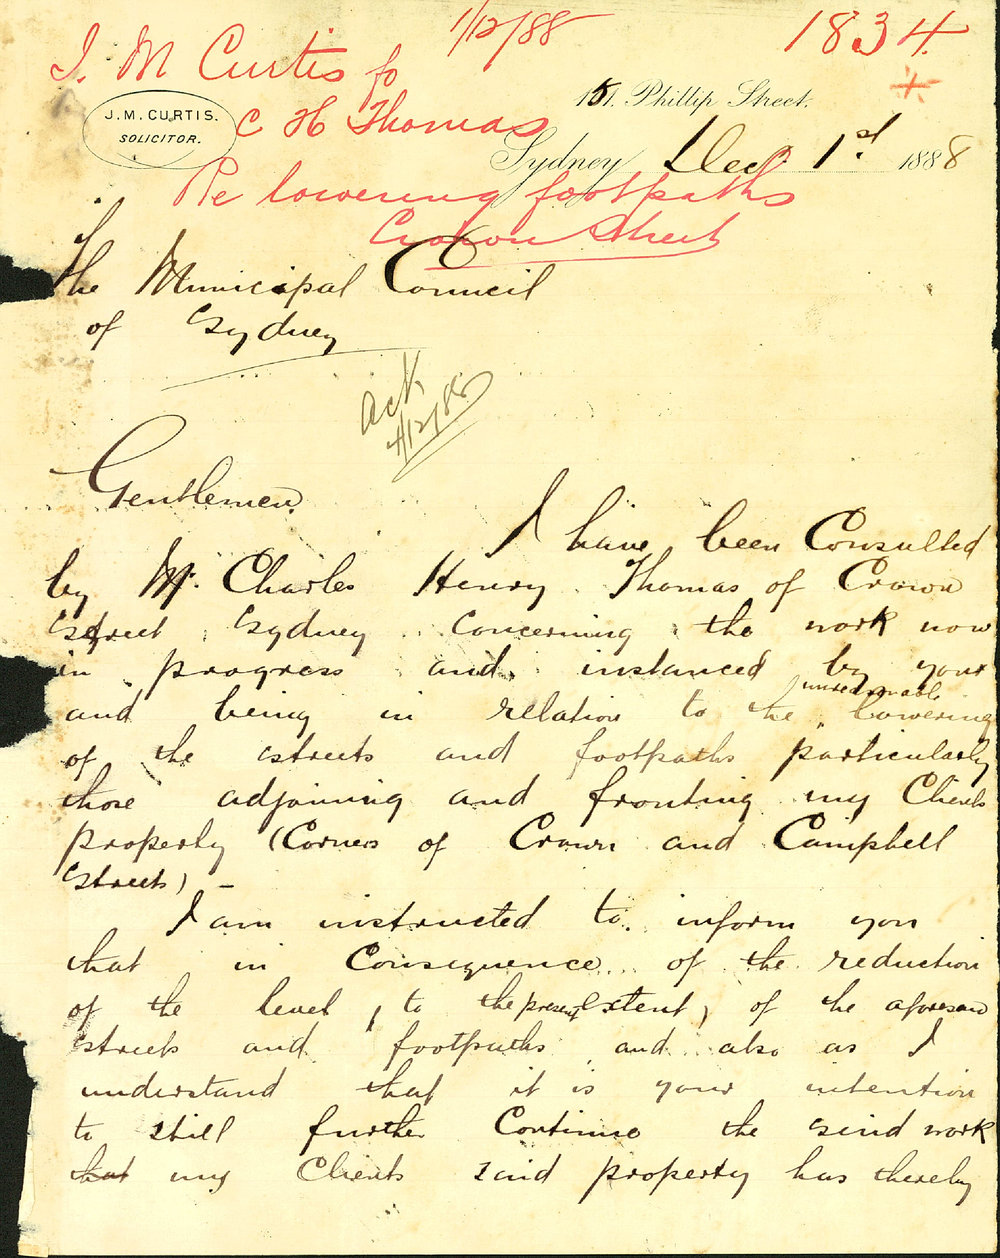 1/12/88
1834
J. M Curtis fo
C H Thomas
Re lowering footpaths
Crown Street
J. M. CURTIS.
SOLICITOR.
151. Phillip Street.
Sydney Decr. 1st 1888
The Municipal Council
of Sydney
Ack
4/12/88
Gentlemen.
I have been Consulted
by Mr. Charles Henry Thomas of Crown
Street Sydney concerning the work now
in progress and instanced by your
and being in relation to the unreasonable lowering
of the streets and footpaths particularly
those adjoining and fronting my Clients
property (Corners of Crown and Campbell
Streets) -
I am instructed to inform you
that in Consequence of the reduction
of the level, to the present Extent, of the aforesaid
streets and footpaths and also as I
understand that it is your intention
to still further Continue the said work
that my Clients said property has thereby